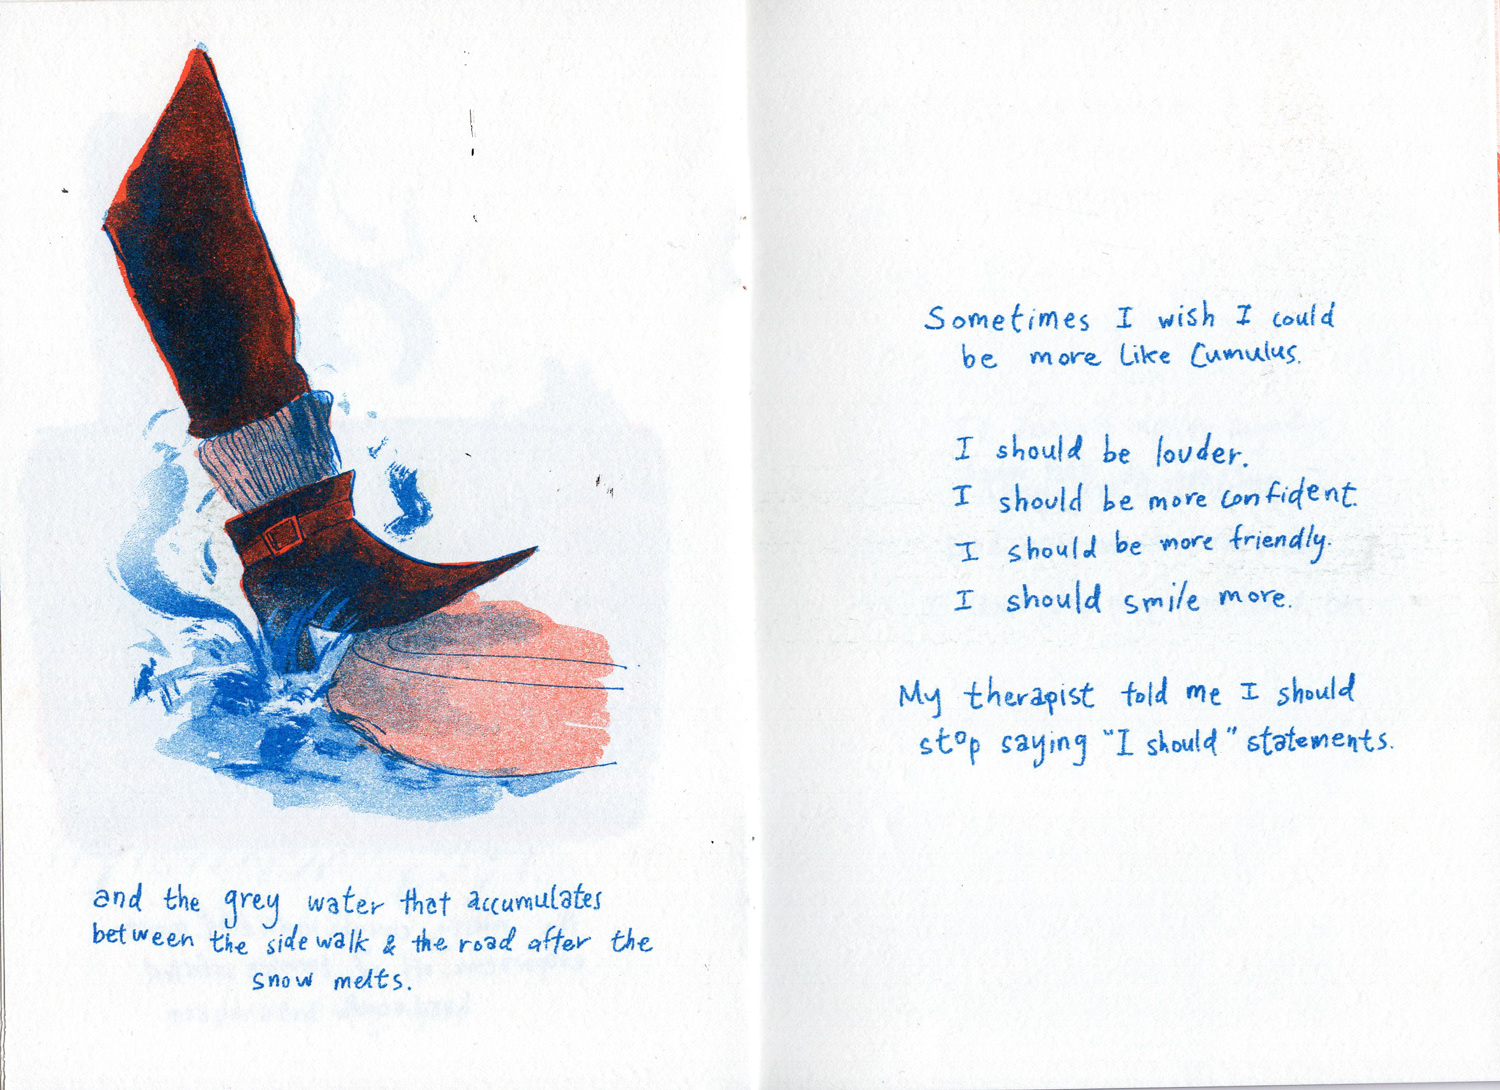 and the grey water that accumulates
between the sidewalk & the road after the
snow melts.
Sometimes I wish I could
be more like Cumulus.
I should be louder.
I should be more confident.
I should be more friendly.
I should smile more.
My therapist told me I should
stop saying "I should" statements.